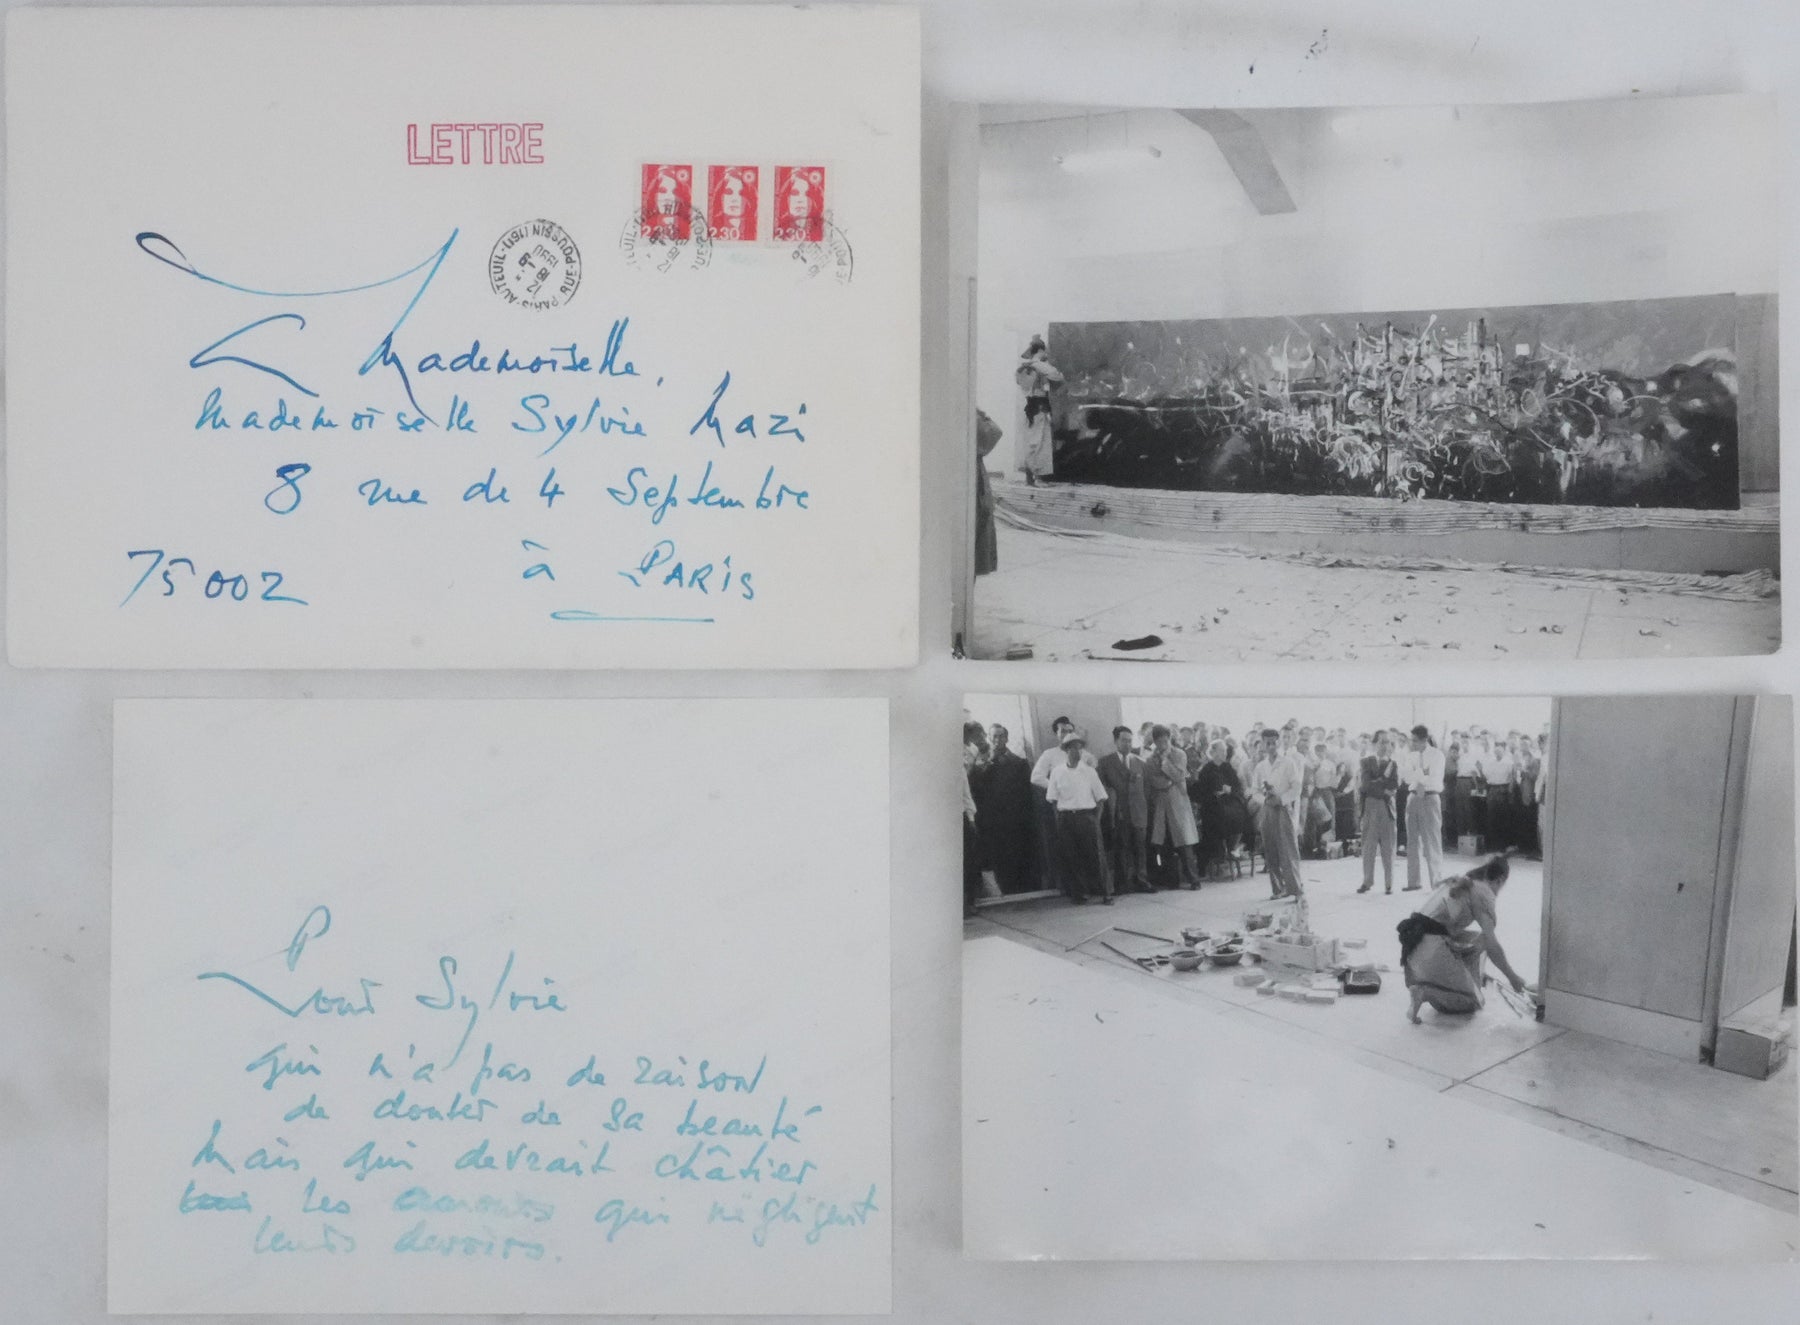 LETTRE
2.30
2.30
2.30
PARIS-AUTEUIL-(16E) RUE-POUSSIN
12 H
18 -9
1990
Mademoiselle,
Mademoiselle Sylvie Mazi
8 rue de 4 Septembre
75002 à PARIS
Pour Sylvie
qui n'a pas de raison
de douter de sa beauté
Mais qui devrait châtier
les amours qui négligent
leurs devoirs.